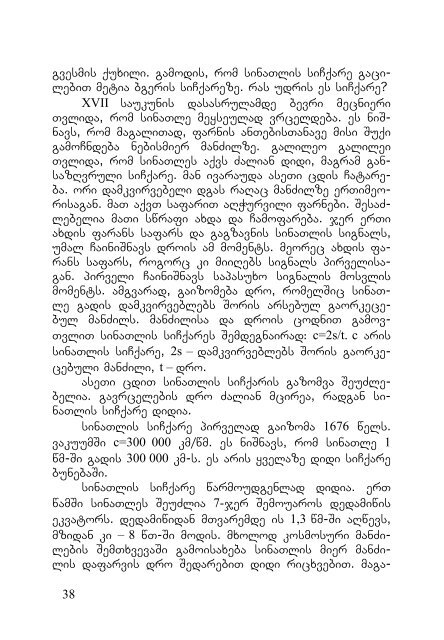 გვესმის ქუხილი. გამოდის, რომ სინათლის სიჩქარე გაცი-
ლებით მეტია ბგერის სიჩქარეზე. რას უდრის ეს სიჩქარე?
XVII საუკუნის დასასრულამდე ბევრი მეცნიერი
თვლიდა, რომ სინათლე მეყსეულად ვრცელდება. ეს ნიშ-
ნავს, რომ მაგალითად, ფარნის ანთებისთანავე მისი შუქი
გამოჩნდება ნებისმიერ მანძილზე. გალილეო გალილეი
თვლიდა, რომ სინათლეს აქვს ძალიან დიდი, მაგრამ გან-
საზღვრული სიჩქარე. მან ივარაუდა ასეთი ცდის ჩატარე-
ბა. ორი დამკვირვებელი დგას რაღაც მანძილზე ერთიმეო-
რისაგან. მათ აქვთ საფარით აღჭურვილი ფარნები. შესაძ-
ლებელია მათი სწრაფი ახდა და ჩამოფარება. ჯერ ერთი
ახდის ფარანს საფარს და გაგზავნის სინათლის სიგნალს,
უმალ ჩაინიშნავს დროის ამ მომენტს. მეორეც ახდის ფა-
რანს საფარს, როგორც კი მიიღებს სიგნალს პირველისა-
გან. პირველი ჩაინიშნავს საპასუხო სიგნალის მოსვლის
მომენტს. ამგვარად, გაიზომება დრო, რომელშიც სინათ-
ლე გადის დამკვირვებლებს შორის არსებულ გაორკეცე-
ბულ მანძილს. მანძილისა და დროის ცოდნით გამოვ-
თვლით სინათლის სიჩქარეს შემდეგნაირად: c=2s/t. c არის
სინათლის სიჩქარე, 2s – დამკვირვებლებს შორის გაორკე-
ცებული მანძილი, t – დრო.
ასეთი ცდით სინათლის სიჩქარის გაზომვა შეუძლე-
ბელია. გავრცელების დრო ძალიან მცირეა, რადგან სი-
ნათლის სიჩქარე დიდია.
სინათლის სიჩქარე პირველად გაიზომა 1676 წელს.
ვაკუუმში c=300 000 კმ/წმ. ეს ნიშნავს, რომ სინათლე 1
წმ-ში გადის 300 000 კმ-ს. ეს არის ყველაზე დიდი სიჩქარე
ბუნებაში.
სინათლის სიჩქარე წარმოუდგენლად დიდია. ერთ
წამში სინათლეს შეუძლია 7-ჯერ შემოუაროს დედამიწის
ეკვატორს. დედამიწიდან მთვარემდე ის 1,3 წმ-ში აღწევს,
მზიდან კი – 8 წთ-ში მოდის. მხოლოდ კოსმოსური მანძი-
ლების შემთხვევაში გამოისახება სინათლის მიერ მანძი-
ლის დაფარვის დრო შედარებით დიდი რიცხვებით. მაგა-
38